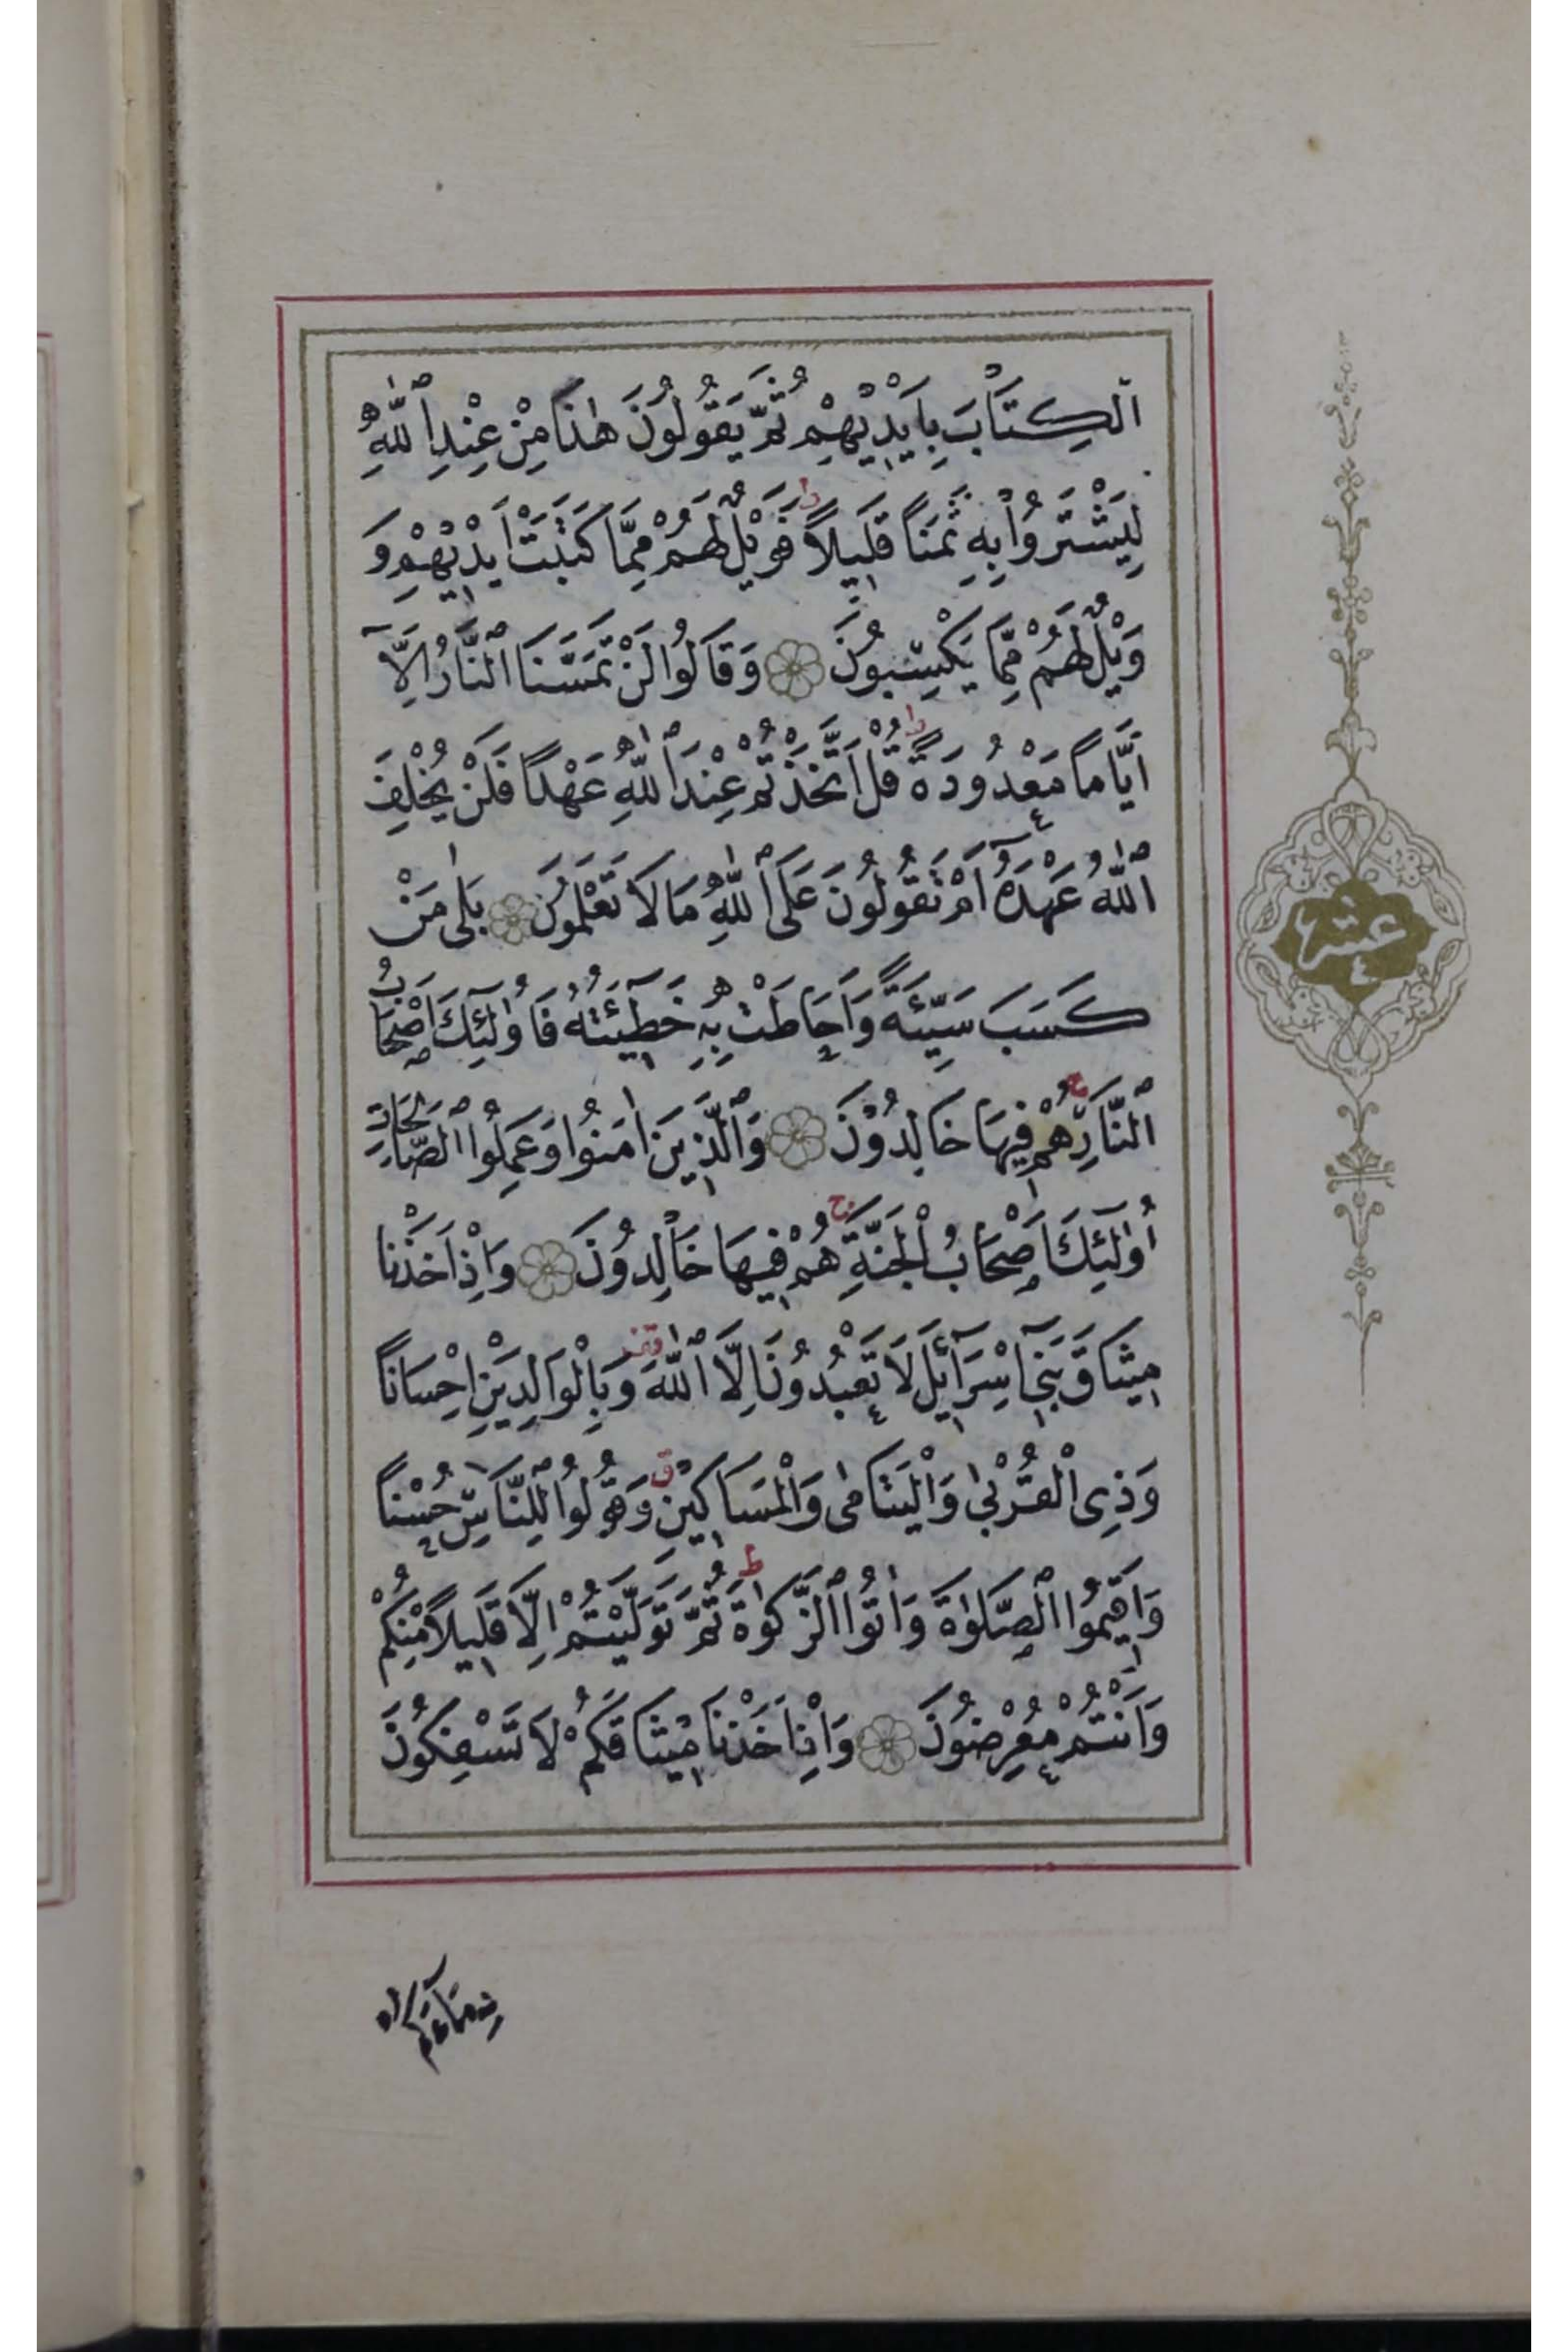 اَلْكِتَابَ بِاَيْدِيْهِمْ ثُمَّ يَقُولُونَ هٰذَا مِنْ عِنْدِ اللّٰهِ
لِيَشْتَرُوْا بِهِ ثَمَنًا قَلِيلاً ط فَوَيْلٌ لَهُمْ مِمَّا كَتَبَتْ اَيْدِيْهِمْ وَ
وَيْلٌ لَهُمْ مِمَّا يَكْسِبُونَ وَقَالُوا لَنْ تَمَسَّنَا النَّارُ اِلَّآ
اَيَّامًا مَعْدُودَةً ط قُلْ اَتَّخَذْتُمْ عِنْدَ اللّٰهِ عَهْدًا فَلَنْ يُخْلِفَ
اللّٰهُ عَهْدَهُٓ اَمْ تَقُولُونَ عَلَى اللّٰهِ مَا لَا تَعْلَمُونَ بَلٰى مَنْ
كَسَبَ سَيِّئَةً وَاَحَاطَتْ بِهِ خَطِٓيئَتُهُ فَاُولٰٓئِكَ اَصْحَابُ
النَّارِ ج هُمْ فِيهَا خَالِدُوْنَ وَالَّذِينَ اٰمَنُوا وَعَمِلُوا الصَّالِحَاتِ
اُولٰٓئِكَ اَصْحَابُ الْجَنَّةِ ج هُمْ فِيهَا خَالِدُونَ وَاِذْ اَخَذْنَا
مِيثَاقَ بَنِٓي اِسْرَٓائِلَ لَا تَعْبُدُونَ اِلَّا اللّٰهَ قف وَبِالْوَالِدَيْنِ اِحْسَانًا
وَذِي الْقُرْبٰى وَالْيَتَامٰى وَالْمَسَاكِيْنِ ق وَقُولُوا لِلنَّاسِ حُسْنًا
وَاَقِيمُوا الصَّلٰوةَ وَاٰتُوا الزَّكٰوةَ ط ثُمَّ تَوَلَّيْتُمْ اِلَّا قَلِيلاً مِنْكُمْ
وَاَنْتُمْ مُعْرِضُونَ وَاِذْ اَخَذْنَا مِيْثَاقَكُمْ لَا تَسْفِكُونَ
عشر
دِمَآءَكُمْ